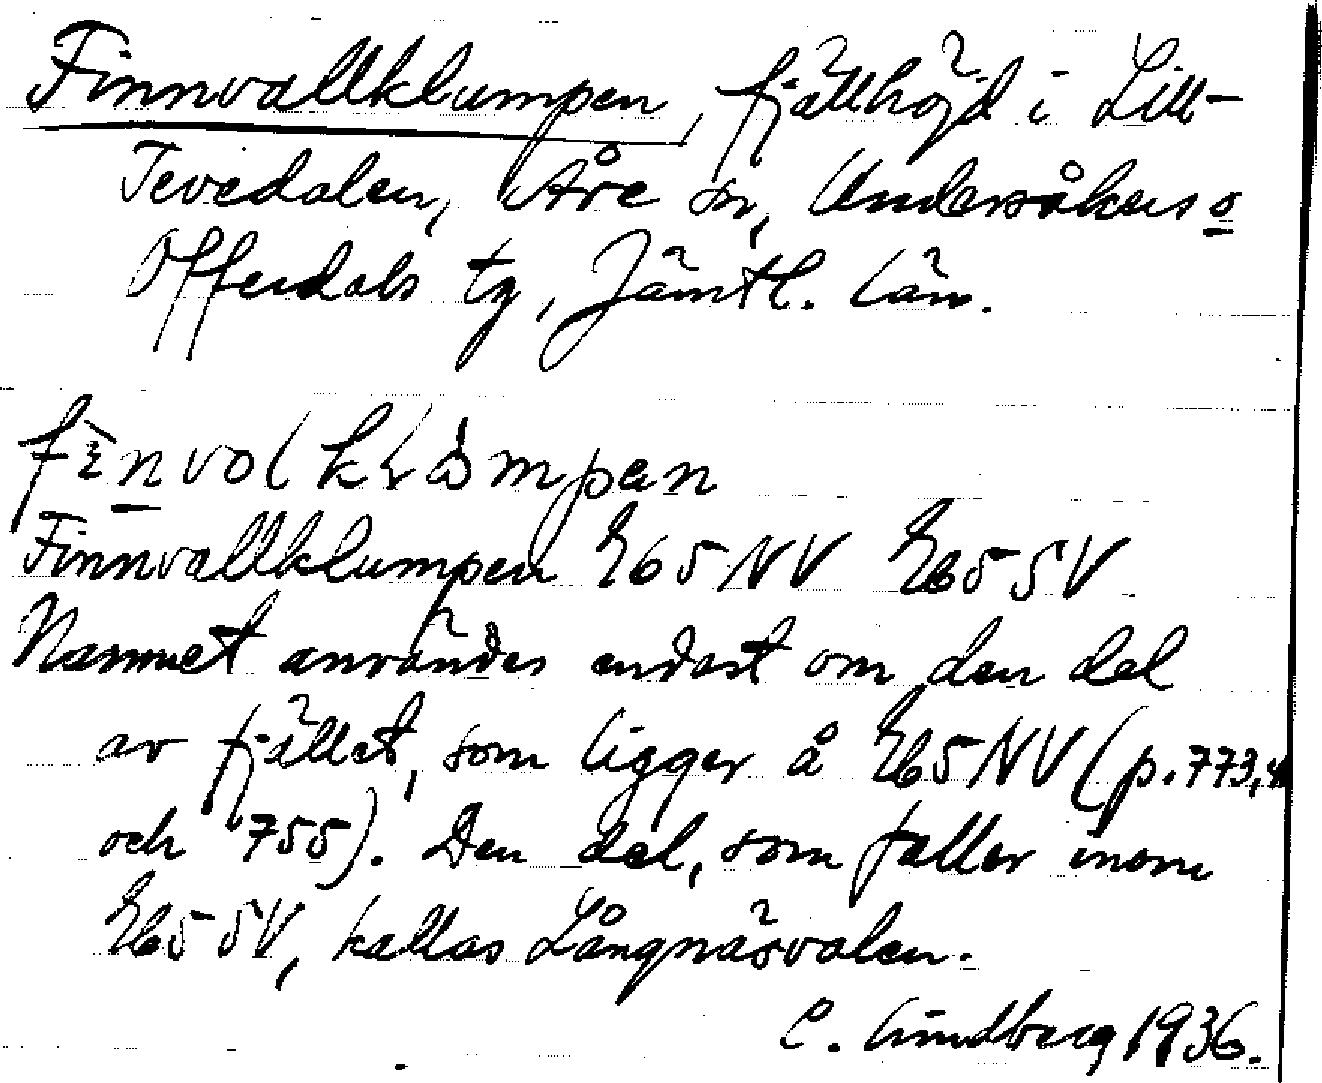 Finnvallklumpen, fjällhöjd i Lill-
Tevedalen, Åre sn, Undersåkers o
Offerdals tg, Jämtl. län.
Finnvallklumpen 65 NV 65 SV
Namnet användes endast om den del
av fjället, som ligger å 65 NV (p. 773,4
och 755). Den del, som faller inom
65 SV, kallas Långnäsvalen.
C. Lindberg 1936.